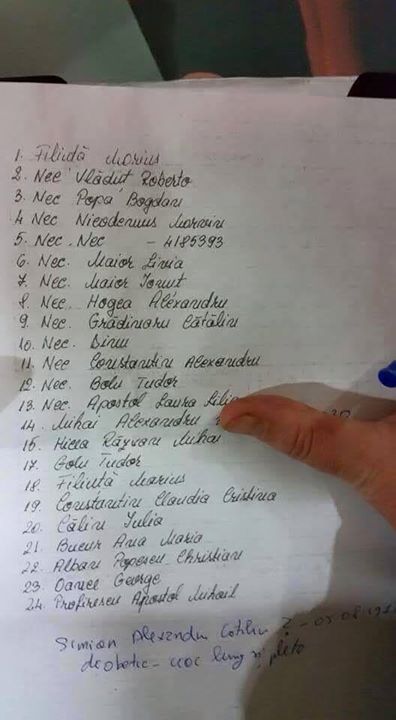 1. Filiuță Marius
2. Nec Vlăduț Roberto
3. Nec Popa Bogdan
4 Nec Nicodemus Marvin
5. Nec. Nec - 4185393
6. Nec. Maior Livia
7. Nec. Maior Ionuț
8. Nec. Hogea Alexandru
9. Nec. Grădinaru Cătălin
10. Nec. Dinu
11. Nec Constantin Alexandru
12. Nec. Golu Tudor
13. Nec. Apostol Laura
14. Mihai Alexandru
15. Răzvan Mihai
17. Golu Tudor
18. Filiuță Marius
19. Constantin Claudia Cristina
20. Călin Iulia
21. Bucur Ana Maria
22. Alban Popescu Christian
23. Oancea George
24. Profirescu Apostol Mihail
Simion Alexandru Cătălin
lung și